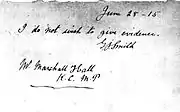 June 28 - 15
I do not wish to give evidence.
G J Smith
Mr. Marshall Hall
K. C. M. P.